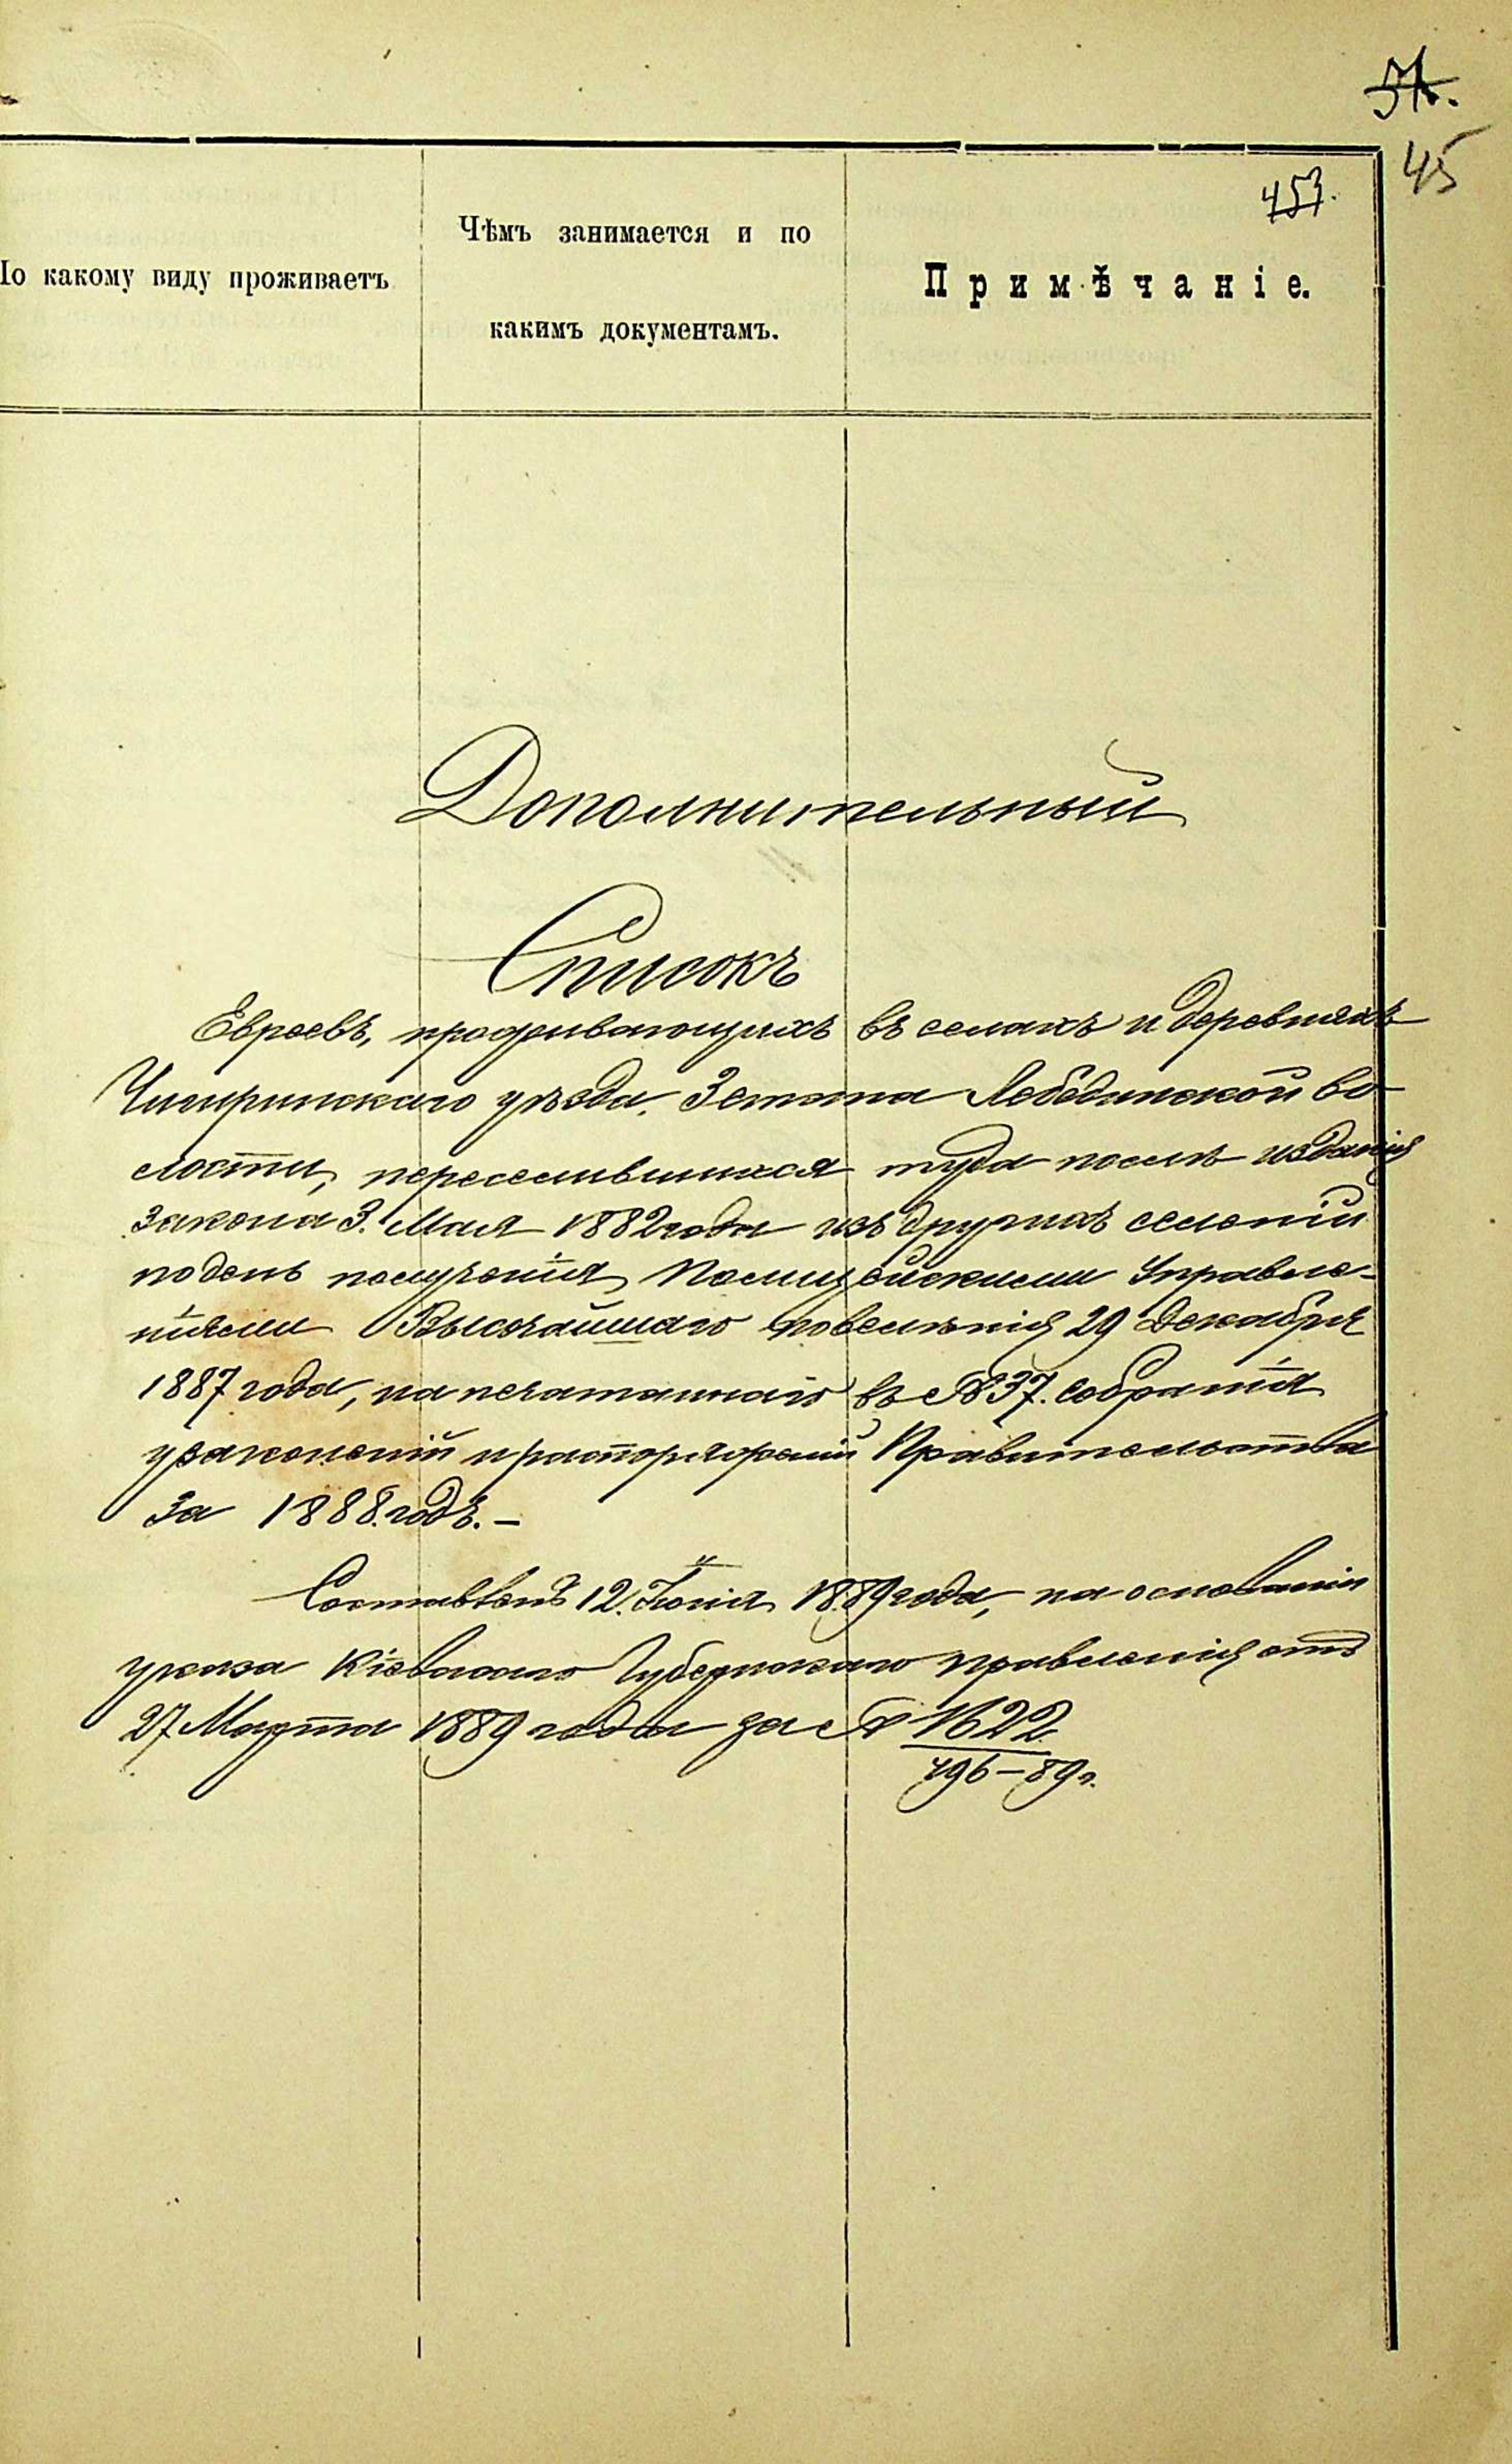 51.
45
453.
По какому виду проживаетъ
Чѣмъ занимается и по
какимъ документамъ.
Примѣчаніе.
Дополнительный
Списокъ
Евреевъ, проживающихъ въ селахъ и деревняхъ
Чигиринскаго уѣзда. 3 стана Лебединской во-
лости, переселившихся туда послѣ изданія
закона 3. Мая 1882 года изъ другихъ селеній
по день полученія Полицейскими Управле-
ніями Высочайшаго повелѣнія 29 Декабря
1887 года, напечатаннаго въ № 37. собранія
узаконеній и распоряженій Правительства
за 1888. годъ. –
Составленъ 12. Іюня 1889 года, на основаніи
указа Кіевскаго Губернскаго правленія отъ
27 Марта 1889 года за № 1622
496 – 89 г.